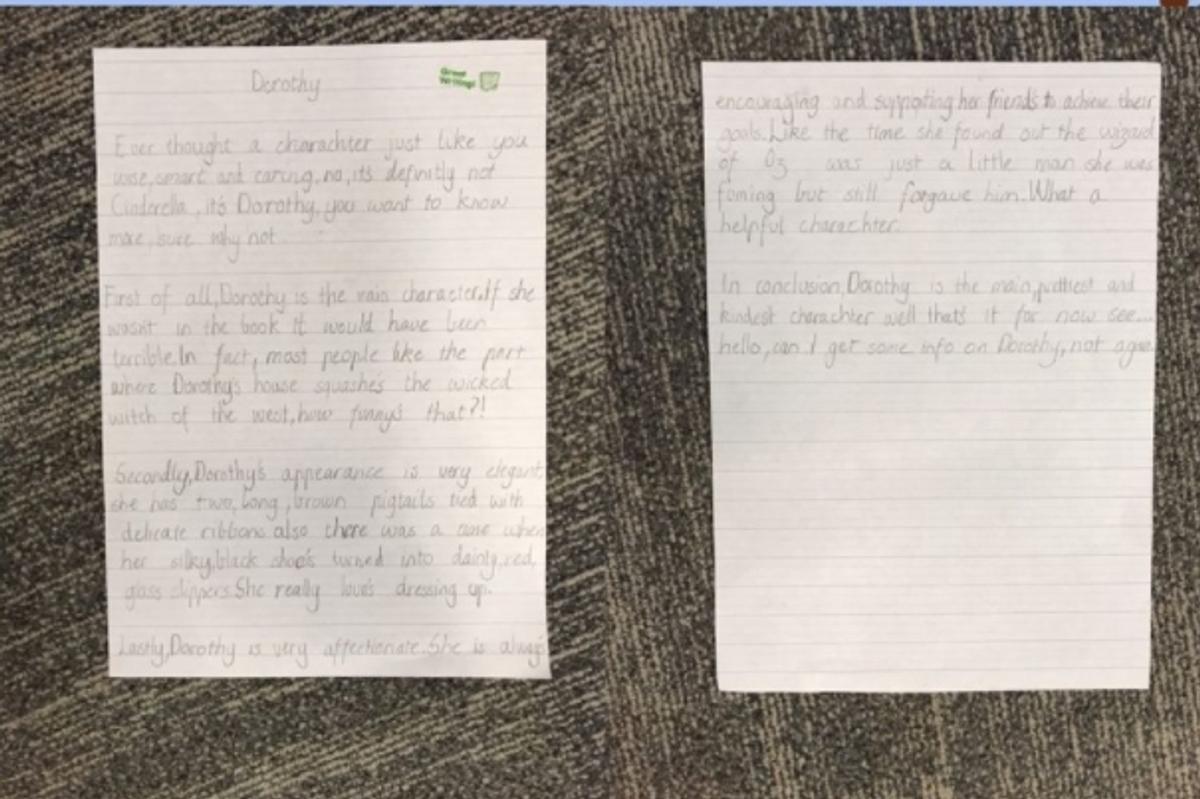 Dorothy
Great
Writing!
Ever thought a charachter just like you
wise, smart and caring, no, it's definitly not
Cinderella, it's Dorothy, you want to know
more, sure why not.
First of all, Dorothy is the main character. If she
wasn't in the book it would have been
terrible. In fact, most people like the part
where Dorothy's house squashe's the wicked
witch of the west, how funny's that?!
Secondly, Dorothy's appearance is very elegant,
she has two, long, brown pigtails tied with
delicate ribbons also there was a time when
her silky, black shoe's turned into dainty, red,
glass slippers. She really love's dressing up.
Lastly, Dorothy is very affectionate. She is always
encouraging and supporting her friends to achieve their
goals. Like the time she found out the wizard
of Oz was just a little man she was
fuming but still forgave him. What a
helpful charachter.
In conclusion, Dorothy is the main, prettiest and
kindest charachter well that's it for now see...
hello, can I get some info on Dorothy, not again